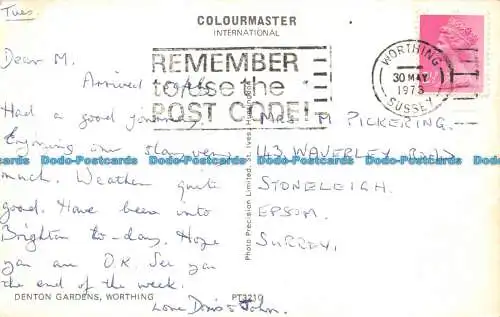 Tues.
COLOURMASTER
INTERNATIONAL
REMEMBER
to use the
POST CODE!
WORTHING
30 MAY
1973
SUSSEX
Dear M.
Arrived
Had a good journey.
Enjoying our stay very
much. Weather quite
good. Have been into
Brighton to-day. Hope
you are O.K. See you
the end of the week.
Love Doris & John.
Mrs M PICKERING.
143 WAVERLEY ROAD
STONELEIGH.
EPSOM.
SURREY.
Photo Precision Limited, St. Ives, Huntingdon
DENTON GARDENS, WORTHING
PT3210
Dodo-Postcards Dodo-Postcards Dodo-Postcards Dodo-Postcards Dodo-Postcards